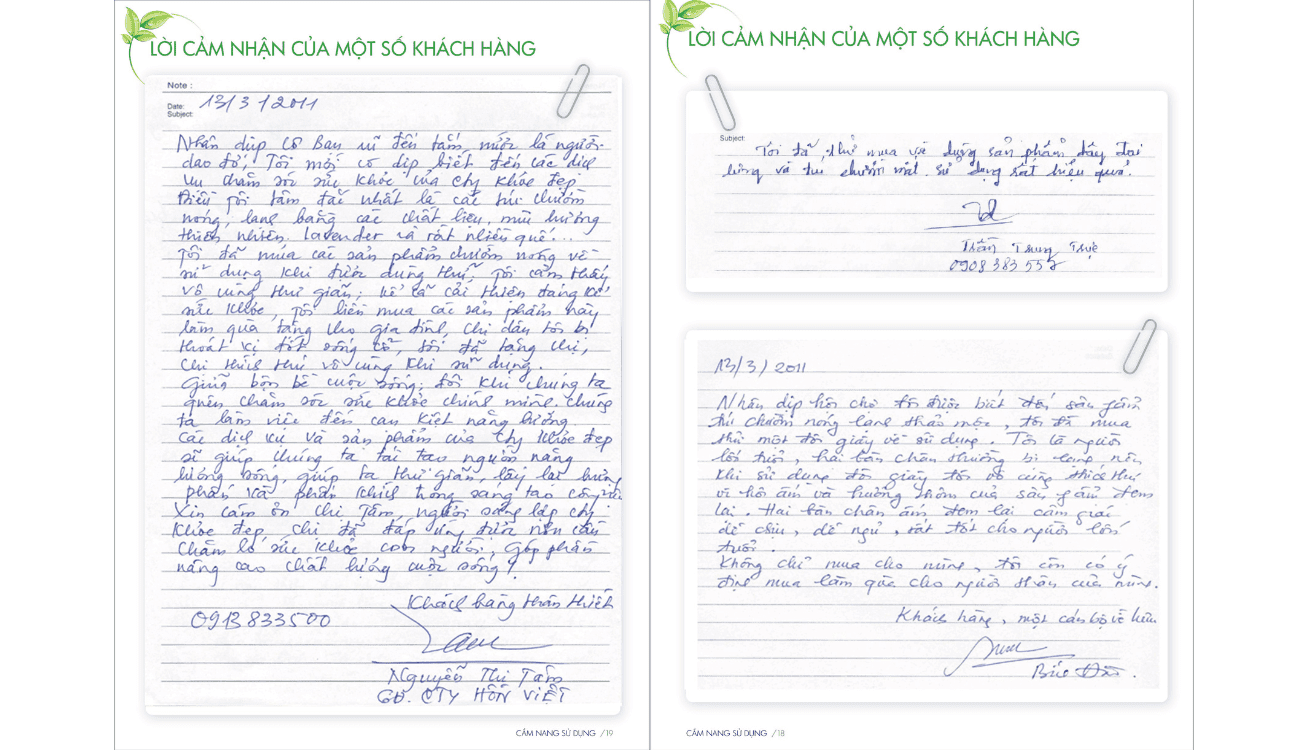 LỜI CẢM NHẬN CỦA MỘT SỐ KHÁCH HÀNG
Note :
Date: 13/3/2011
Subject:
Nhân dịp cô bạn đến tắm, mới là người
dao đỏ, Tôi mới có dịp biết đến các dịch
vụ chăm sóc sức khỏe của Cty Khỏe Đẹp
Điều tôi tâm đắc nhất là các túi chườm
nóng, lạnh bằng các chất liệu, mùi hương
thiên nhiên. Lavender và rất nhiều quế...
Tôi đã mua các sản phẩm chườm nóng về
sử dụng khi được dùng thử, Tôi cảm thấy
vô cùng thư giãn, kể cả cải thiện đáng kể
sức khỏe, Tôi liền mua các sản phẩm này
làm quà tặng cho gia đình, chị dâu tôi bị
thoát vị đốt sống cổ, tôi đã tặng chị,
chị thích thú vô cùng khi sử dụng.
Giữa bộn bề cuộc sống, đôi khi chúng ta
quên chăm sóc sức khỏe chính mình. chúng
ta làm việc đến cạn kiệt năng lượng.
Các dịch vụ và sản phẩm của Cty Khỏe đẹp
sẽ giúp chúng ta tái tạo nguồn năng
lượng sống, giúp ta thư giãn, lấy lại hưng
phấn và phấn khích trong sáng tạo công việc
Xin cám ơn chị Tâm, người sáng lập cty
Khỏe đẹp, chị đã đáp ứng được nhu cầu
chăm lo sức khỏe con người, góp phần
nâng cao chất lượng cuộc sống!
Khách hàng thân thiết
0913833500
Nguyễn Thị Tám
GĐ. CTY HỒN VIỆT
CẨM NANG SỬ DỤNG /19
LỜI CẢM NHẬN CỦA MỘT SỐ KHÁCH HÀNG
Subject:
Tôi đã thử mua về dụng sản phẩm đây đai
lưng và túi chườm mắt. sử dụng rất hiệu quả.
Trần Trung Trực
0908 383 557
13/3/2011
Nhân dịp hội chợ tôi được biết đến sản phẩm
túi chườm nóng lạnh thảo mộc, tôi đã mua
thử một đôi giầy về sử dụng. Tôi là người
lớn tuổi, hai bàn chân thường bị lạnh nên
khi sử dụng đôi giầy tôi vô cùng thích thú
vì hơi ấm và hương thơm của sản phẩm đem
lại. Hai bàn chân ấm đem lại cảm giác
dễ chịu, dễ ngủ, rất tốt cho người lớn
tuổi.
Không chỉ mua cho mình, tôi còn có ý
định mua làm quà cho người thân của mình.
Khách hàng, một cán bộ về hưu
CẨM NANG SỬ DỤNG /18